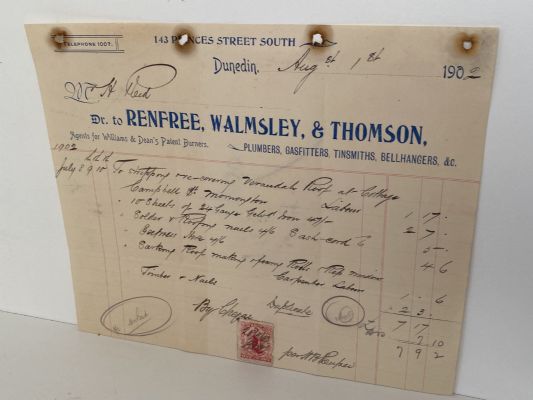 TELEPHONE 1007.
143 PRINCES STREET SOUTH
Dunedin, Aug st 1st 1902
Mr H Reid
Dr. to RENFREE, WALMSLEY, & THOMSON,
Agents for Williams & Dean's Patent Burners.
PLUMBERS, GASFITTERS, TINSMITHS, BELLHANGERS, &c.
1902
July 8 9 10 To stripping & re-covering Verandah Roof at Cottage
Campbell St Mornington Labour 1 17
" 10 Sheets of 24 Gauge Galvd Iron 47/- 2 7
" Solder & Roofing nails 4/6 Sash-cord 6 5
" 4/6 4 6
" Roof making & Window
Timber & Nails Carpenter Labour 1 6
2 3
By Cheque 7 17
Less 7 10
7 9 2
per Renfree